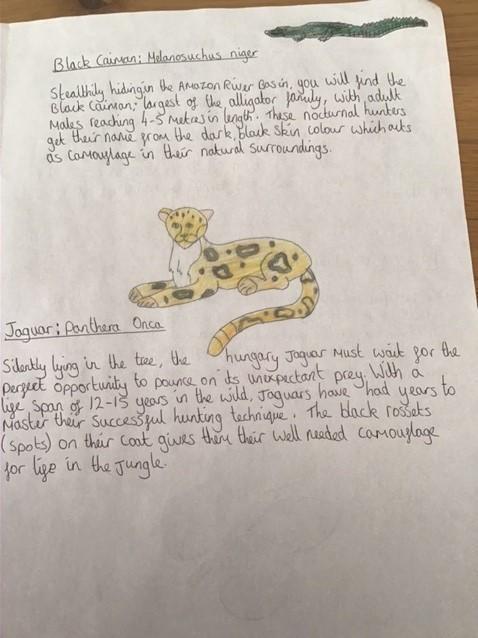 Black Caiman; Melanosuchus niger
Stealthily hiding in the Amazon River Basin, you will find the
Black Caiman; largest of the alligator family, with adult
Males reaching 4-5 Metres in length. These nocturnal hunters
get their name from the dark, black skin colour which acts
as camouflage in their natural surroundings.
Jaguar; Panthera Onca
Silently lying in the tree, the hungary Jaguar Must wait for the
perfect opportunity to pounce on its unexpectant prey. With a
life span of 12-15 years in the wild, Jaguars have had years to
Master their successful hunting technique. The black rossets
(spots) on their coat gives them their well needed camouflage
for life in the Jungle.